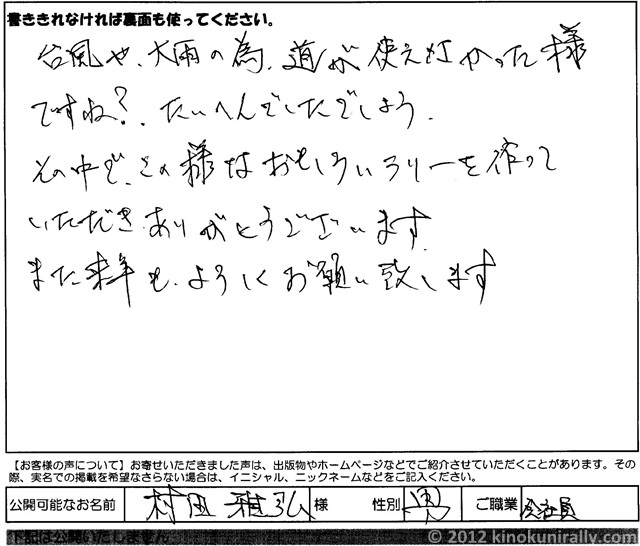 書ききれなければ裏面も使ってください。
台風や、大雨の為、道が使えなかった様
ですね?. たいへんでしたでしょう.
その中で、この様なおもしろいラリーを作って
いただき、ありがとうございます.
また来年も、よろしくお願い致します
【お客様の声について】お寄せいただきました声は、出版物やホームページなどでご紹介させていただくことがあります。その
際、実名での掲載を希望なさらない場合は、イニシャル、ニックネームなどをご記入ください。
公開可能なお名前 村田 雅弘 様 性別 男 ご職業 会社員
下記は公開いたしません
© 2012 kinokunirally.com